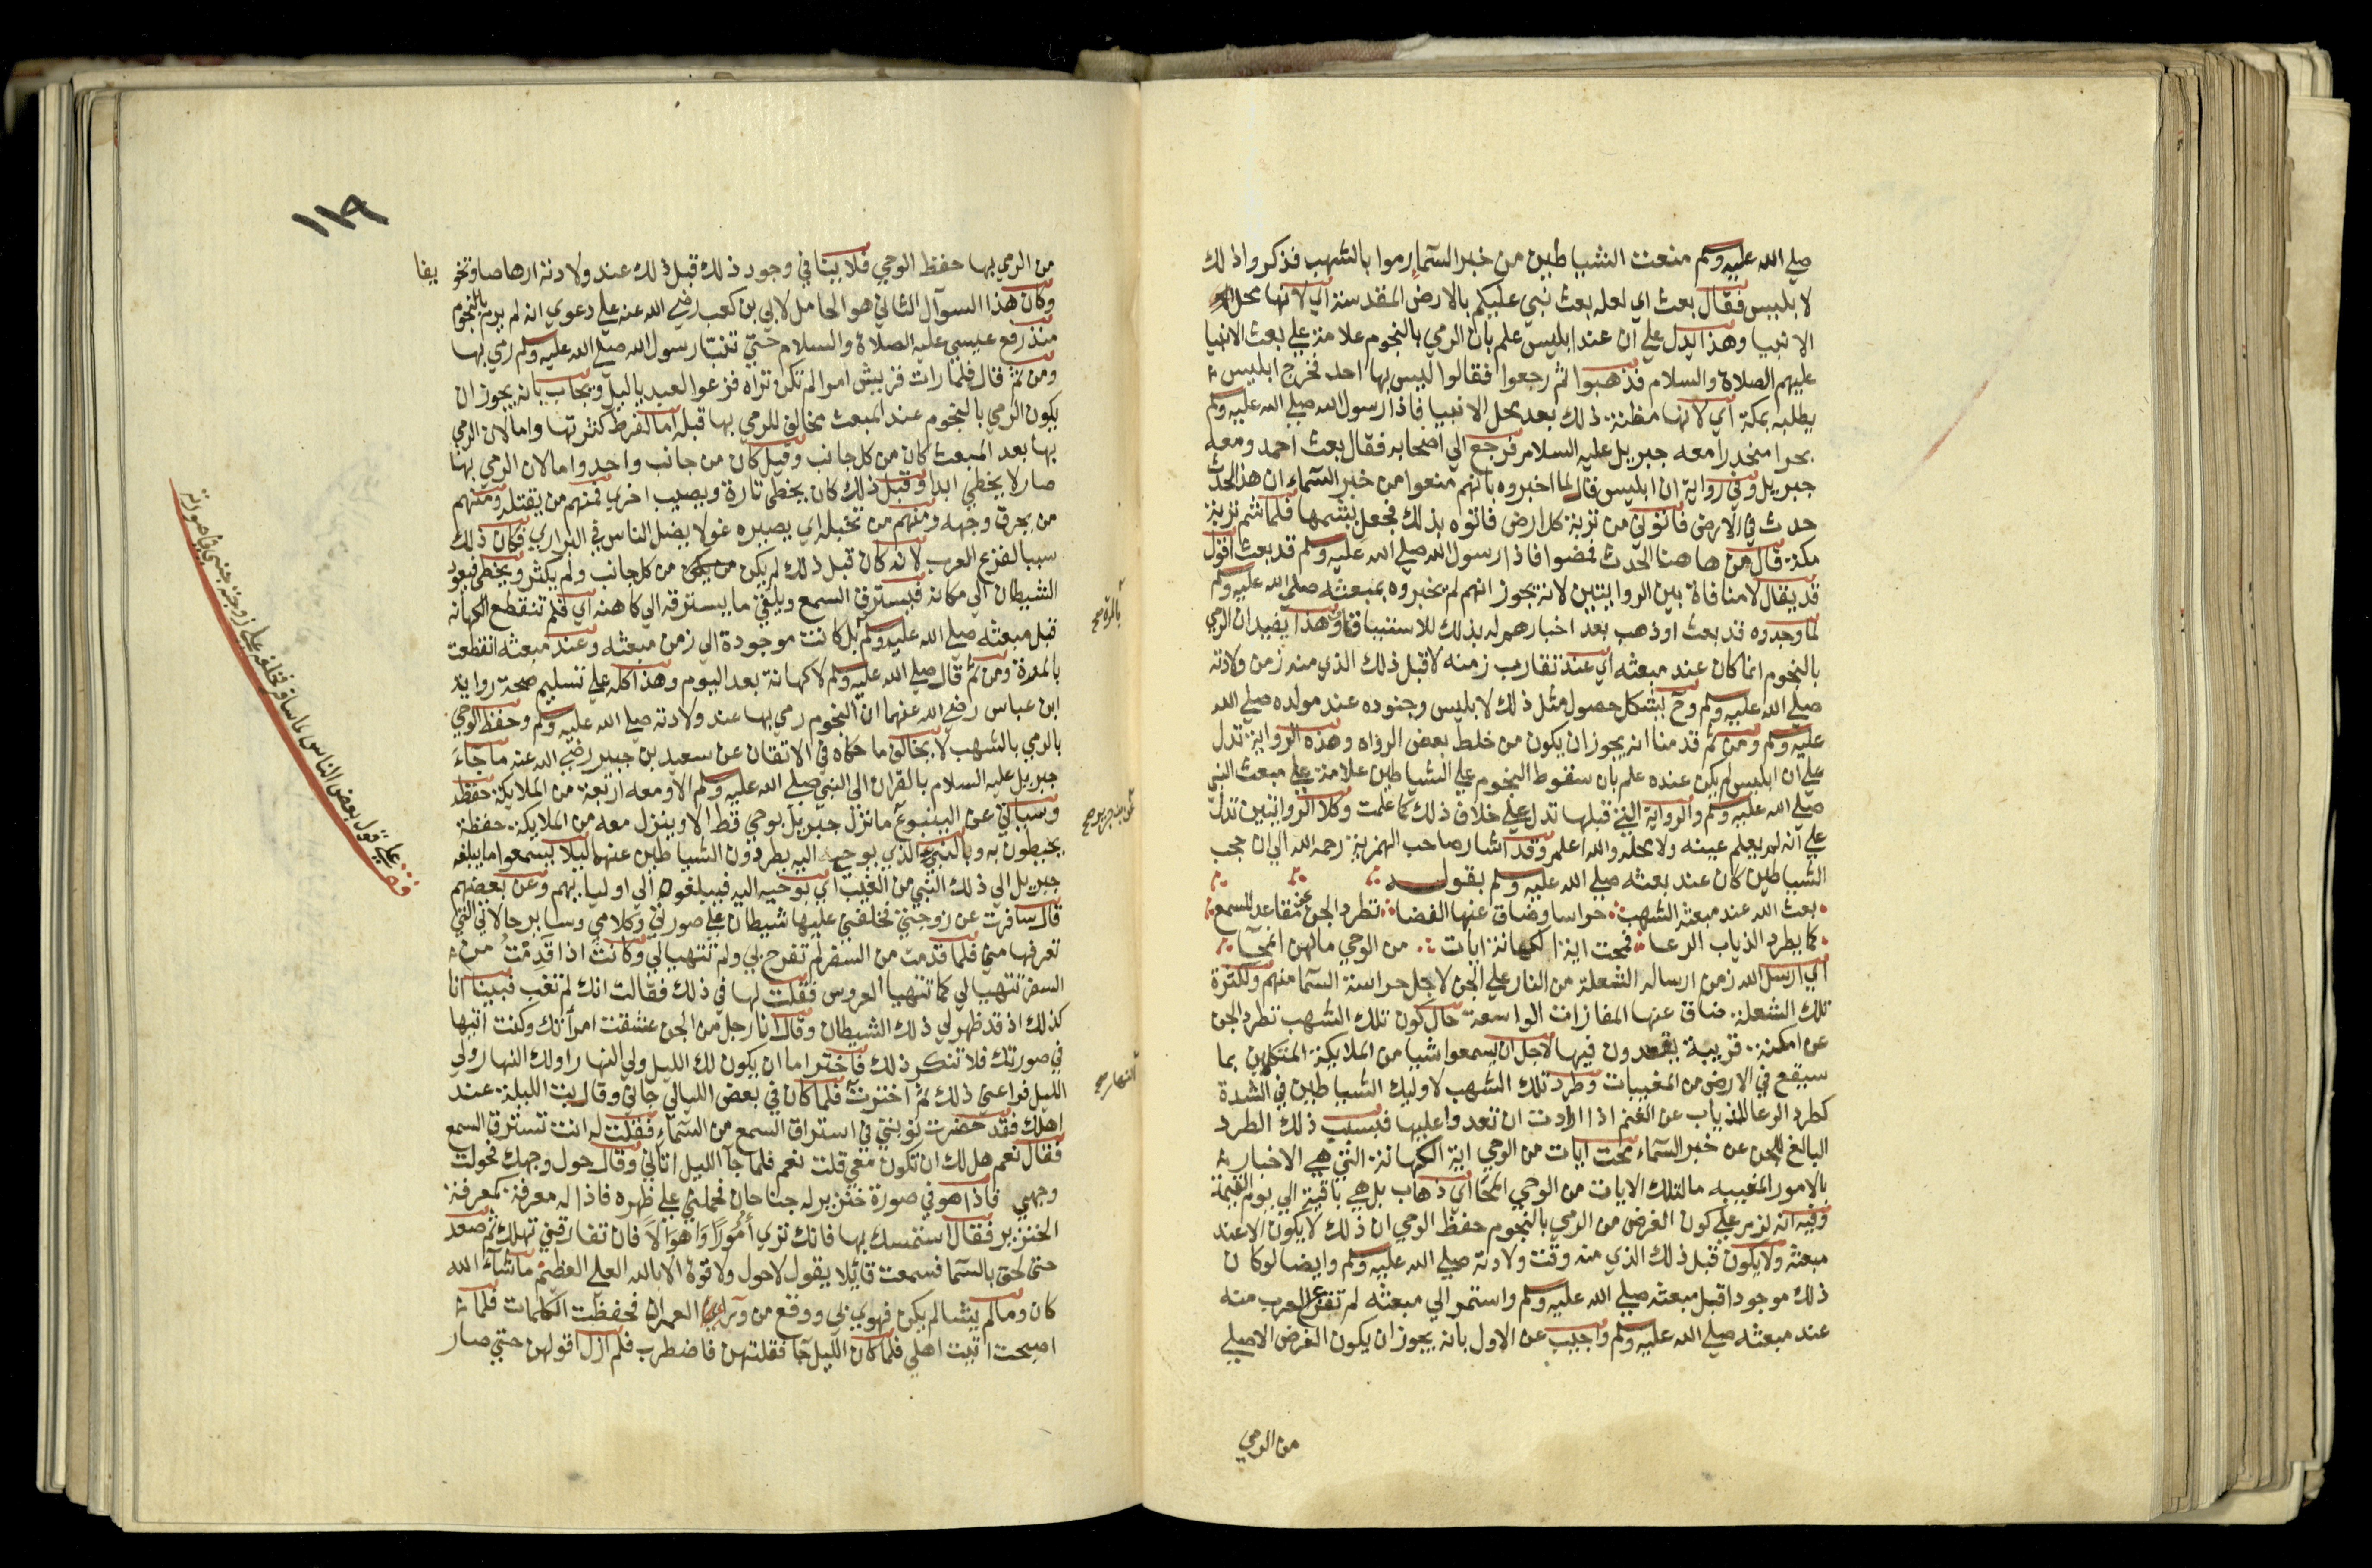 صلي الله عليه وسلم منعت الشياطين من خبر السمآء رموا بالشهب فذكروا ذلك
لابليس فقال بعث اي لعله بعث نبي عليكم بالارض المقدسة اي لانها محل
الانبيا وهذا يدل علي ان عند ابليس علم بان الرمي بالنجوم علامة علي بعث الانبيا
عليهم الصلاة والسلام فذهبوا ثم رجعوا فقالوا ليس بها احد فخرج ابليس
يطلبه بمكة اي لانها مظنة ذلك بعد محل الانبيا فاذا رسول الله صلي الله عليه وسلم
بحرا منحدرا معه جبريل عليه السلام فرجع الي اصحابه فقال بعث احمد ومعه
جبريل وفي رواية ان ابليس قال لما اخبروه بانهم منعوا من خبر السماء ان هذا الحدث
حدث في الارض فاتوني من تربة كل ارض فاتوه بذلك فجعل يشمها فلما شم تربة
مكة قال من هاهنا الحدث فمضوا فاذا رسول الله صلي الله عليه وسلم قد بعث اقول
قد يقال لا منافاة بين الروايتين لانه يجوز انهم لم يخبروه بمبعثه صلي الله عليه وسلم
لما وجدوه قد بعث او ذهب بعد اخبارهم له بذلك للاستيباق وهذا يفيد ان الرمي
بالنجوم انما كان عند مبعثه اي عند تقارب زمنه لا قبل ذلك الذي منه زمن ولادته
صلي الله عليه وسلم وح يشكل حصول مثل ذلك لابليس وجنوده عند مولده صلي الله
عليه وسلم ومن ثم قدمنا انه يجوز ان يكون من خلط بعض الرواه وهذه الرواية تدل
علي ان ابليس لم يكن عنده علم بان سقوط النجوم علي الشياطين علامة علي مبعث النبي
صلي الله عليه وسلم والرواية التي قبلها تدل علي خلاف ذلك كما علمت وكلا الروايتين تدل
علي انه لم يعلم عينه ولا محله والله اعلم وقد اشار صاحب الهمزية رحمه الله الي ان حجب
الشياطين كان عند بعثه صلي الله عليه وسلم بقوله
بعث الله عند مبعثه الشهب حراسا وضاق عنها الفضا تطرد الجن عن مقاعد للسمع
كما يطرد الذياب الرعا فمحت اية الكهانة ايات من الوحي ما لهن انمحآ
اي ارسل الله زمن ارساله الشعلة من النار علي الجن لاجل حراسة السما منهم ولكثرة
تلك الشعلة ضاق عنها المفازات الواسعة حال كون تلك الشهب تطرد الجن
عن امكنة قريبة يقعدون فيها لاجل ان يسمعوا شيا من الملايكة المتكلمين بما
سيقع في الارض من المغيبات وطرد تلك الشهب لاوليك الشياطين في الشدة
كطرد الرعا للذياب عن الغنم اذا ارادت ان تعدوا عليها فبسبب ذلك الطرد
البالغ للجن عن خبر السمآء محت ايات من الوحي اية الكهانة التي هي الاخبار
بالامور المغيبه ما لتلك الايات من الوحي امحا اي ذهاب بل هي باقية الي يوم القيمة
وفيه انه لزم علي كون الغرض من الرمي بالنجوم حفظ الوحي ان ذلك لا يكون الا عند
مبعثه ولا يكون قبل ذلك الذي منه وقت ولادته صلي الله عليه وسلم وايضا لو كان
ذلك موجودا قبل مبعثه صلي الله عليه وسلم واستمر الي مبعثه لم تفزع العرب منه
عند مبعثه صلي الله عليه وسلم واجيب عن الاول بانه يجوز ان يكون الغرض الاصلي
من الرمي
١١٩
من الرمي بها حفظ الوحي فلا ينافي وجود ذلك قبل ذلك عند ولادته ارهاصا وتخويفا
وكان هذا السوآل الثاني هو الحامل لابي بن كعب رضي الله عنه علي دعوي انه لم يرم بالنجوم
منذ رفع عيسي عليه الصلاة والسلام حتي تنبا رسول الله صلي الله عليه وسلم رمي بها
ومن ثم قال فلما رات قريش امرا لم تكن تراه فزعوا لعبد ياليل ويجاب بانه يجوز ان
يكون الرمي بالنجوم عند المبعث مخالف للرمي بها قبله اما لفرط كثرتها واما لان الرمي
بها بعد المبعث كان من كل جانب وقيل كان من جانب واحد واما لان الرمي بها
صار لا يخطي ابدا وقبل ذلك كان يخطي تارة ويصيب اخري فمنهم من يقتله ومنهم
من يحرق وجهه ومنهم من تخبله اي يصيره غولا يضل الناس في البراري فكان ذلك
سببا لفزع العرب لانه كان قبل ذلك لم يكن من كل جانب ولم يكثر ويخطي فيعود
الشيطان الي مكانه فيسترق السمع ويلقي ما يسترقه الي كاهنه اي فلم تنقطع الكهانه
قبل مبعثه صلي الله عليه وسلم بل كانت موجودة الي زمن مبعثه وعند مبعثه انقطعت
بالمرة ومن ثم قال صلي الله عليه وسلم لا كهانة بعد اليوم وهذا كله علي تسليم صحة رواية
ابن عباس رضي الله عنهما ان النجوم رمي بها عند ولادته صلي الله عليه وسلم وحفظ الوحي
بالرمي بالشهب لا يخالف ما حكاه في الاتقان عن سعيد بن جبير رضي الله عنه ما جآء
جبريل عليه السلام بالقران الي النبي صلي الله عليه وسلم الا ومعه اربعة من الملايكة حفظة
وسياتي عن الينبوع ما نزل جبريل بوحي قط الا وينزل معه من الملايكة حفظة
يحيطون به وبالنبي الذي يوحي اليه يطردون الشياطين عنهما ليلا يسمعوا ما يبلغه
جبريل الي ذلك النبي من الغيب اي يوحيه اليه فيبلغوه الي اوليايهم وعن بعضهم
قال سافرت عن زوجتي فخلفني عليها شيطان علي صورتي وكلامي وساير حالاتي التي
تعرفها مني فلما قدمت من السفر لم تفرح بي ولم تتهيا لي وكانت اذا قدمت من
السفر تتهيا لي كما تتهيا العروس فقلت لها في ذلك فقالت انك لم تغب فبينا انا
كذلك اذ قد ظهر لي ذلك الشيطان وقال انا رجل من الجن عشقت امراتك وكنت اتيها
في صورتك فلا تنكر ذلك فاختر اما ان يكون لك الليل ولي النهار او لك النهار ولي
الليل فراعني ذلك ثم اخترت فلما كان في بعض الليالي جاني وقال بت الليلة عند
اهلك فقد حضرت نوبتي في استراق السمع من السمآء فقلت له انت تسترق السمع
فقال نعم هل لك ان تكون معي قلت نعم فلما جآ الليل اتاني وقال حول وجهك فحولت
وجهي فاذا هو في صورة خنزير له جناحان فحملني علي ظهره فاذا له معرفة كمعرفة
الخنزير فقال استمسك بها فانك تري أُمُورًا وَاهوالاً فان تفارقني تهلك ثم صعد
حتي لحق بالسما فسمعت قائلا يقول لا حول ولا قوة الا بالله العلي العظيم ماشآء الله
كان وما لم يشا لم يكن فهوي بي ووقع من ورآء العمران فحفظت الكلمات فلما
اصبحت اتيت اهلي فلما كان الليل جآ فقلتهن فاضطرب فلم ازل اقولهن حتي صار
بالمرة صح
النهار صح
قف علي قول بعض الناس لما سافر فخلفه علي زوجته جني في صورته